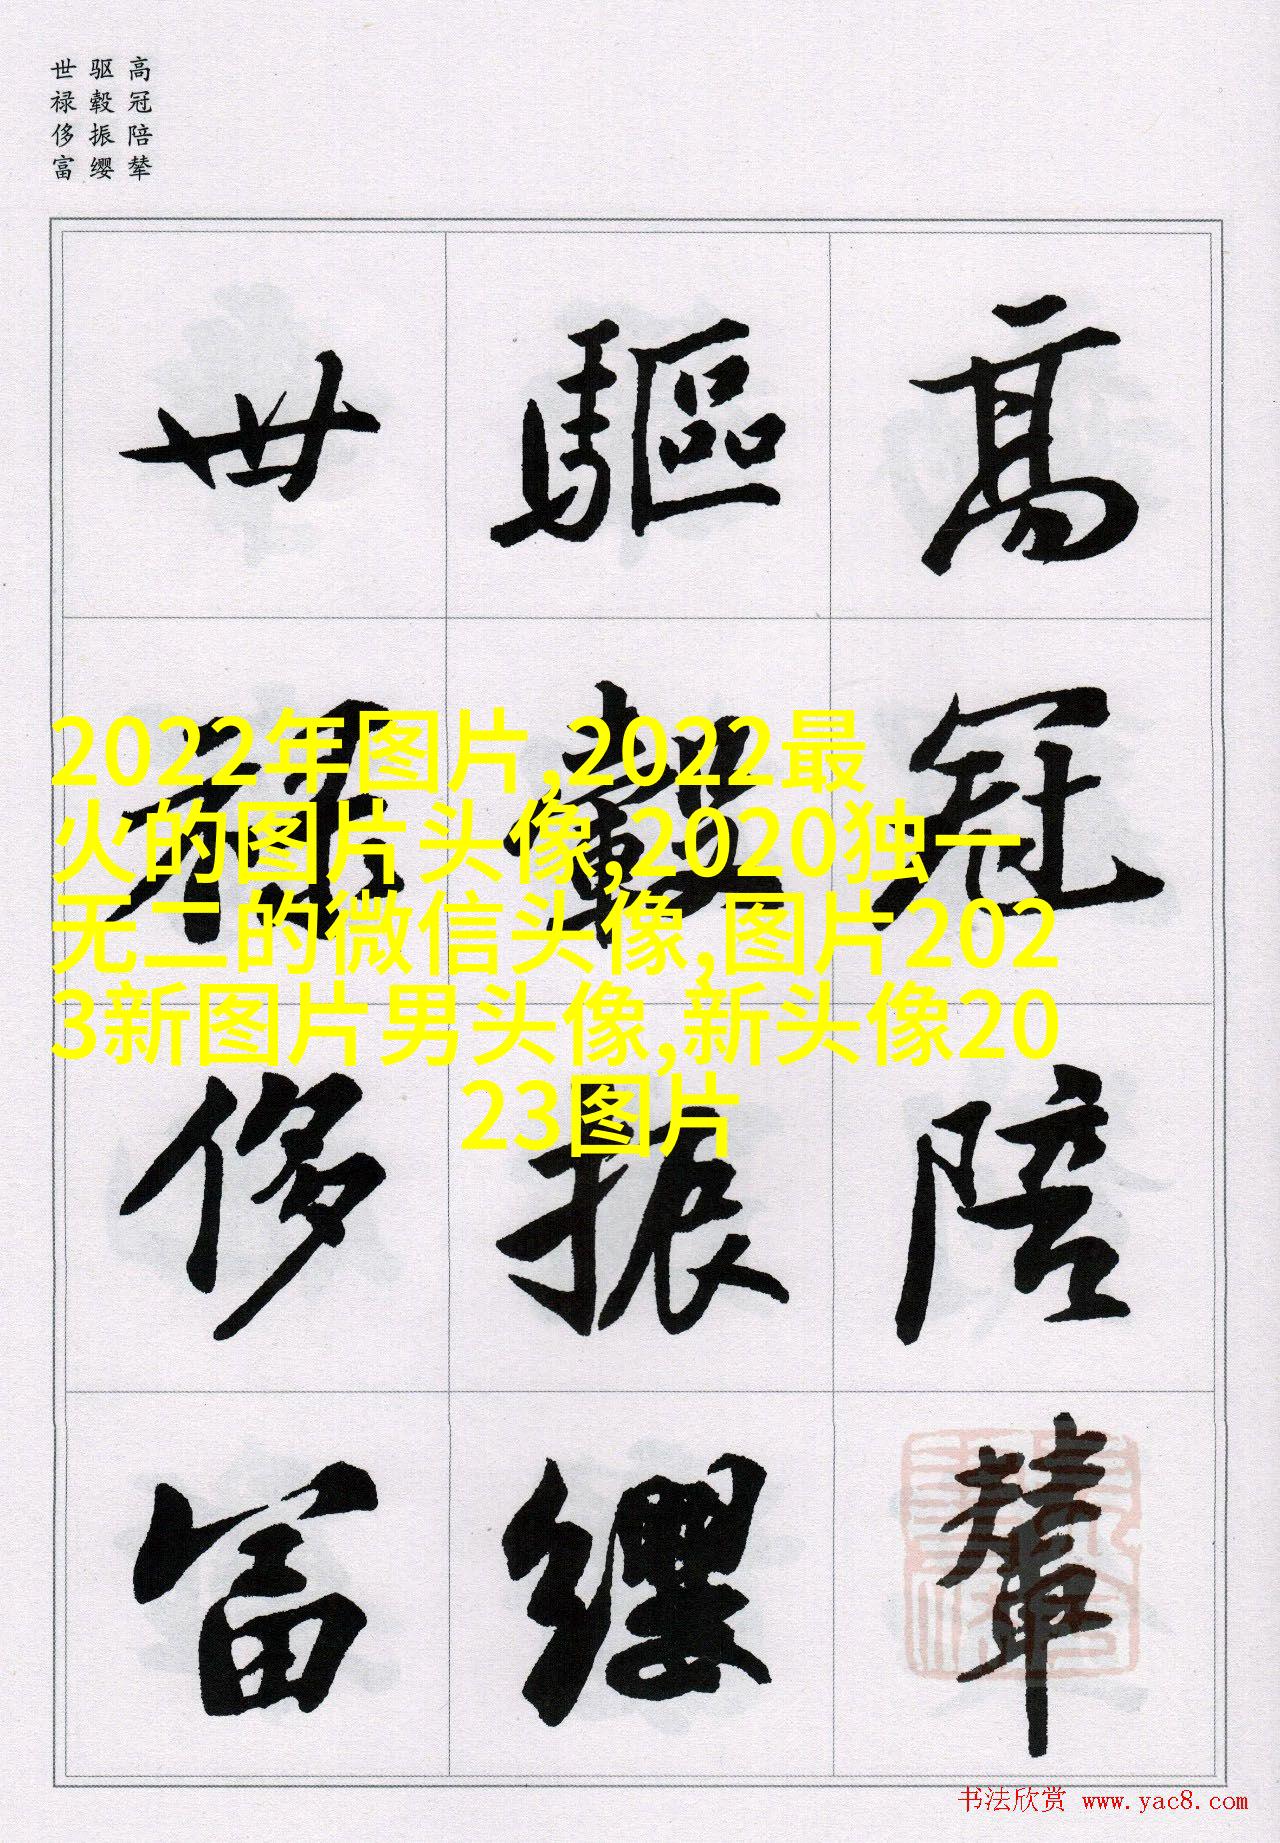 高冠陪辇
驱毂振缨
世禄侈富
高冠陪輦
驅轂振纓
世禄侈富
2022年图片,2022最
火的图片头像,2020独一
无二的微信头像,图片202
3新图片男头像,新头像20
23图片
书法欣赏 www.yac8.com